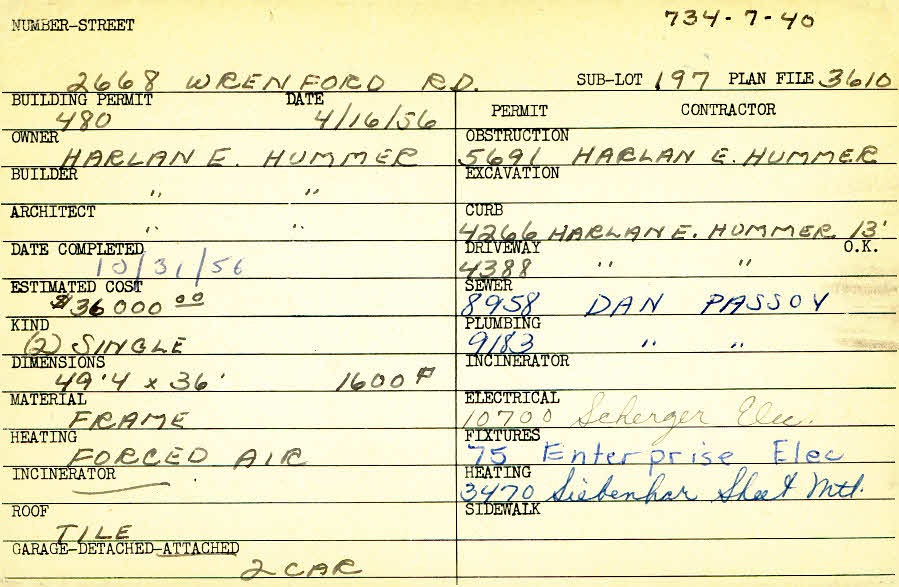 734-7-40
NUMBER-STREET
2668 WRENFORD RD. SUB-LOT 197 PLAN FILE 3610
BUILDING PERMIT DATE
480 4/16/56
OWNER
HARLAN E. HUMMER
BUILDER
" "
ARCHITECT
" "
DATE COMPLETED
10/31/56
ESTIMATED COST
$36000 00
KIND
(2) SINGLE
DIMENSIONS
49'4 x 36' 1600 F
MATERIAL
FRAME
HEATING
FORCED AIR
INCINERATOR
ROOF
TILE
GARAGE-DETACHED-ATTACHED
2 CAR
PERMIT CONTRACTOR
OBSTRUCTION
5691 HARLAN E. HUMMER
EXCAVATION
CURB
4266 HARLAN E. HUMMER 13'
DRIVEWAY O.K.
4388 " "
SEWER
8958 DAN PASSOV
PLUMBING
9183 " "
INCINERATOR
ELECTRICAL
10700 Scherger Elec.
FIXTURES
75 Enterprise Elec
HEATING
3470 Siebenhar Sheet Mtl.
SIDEWALK